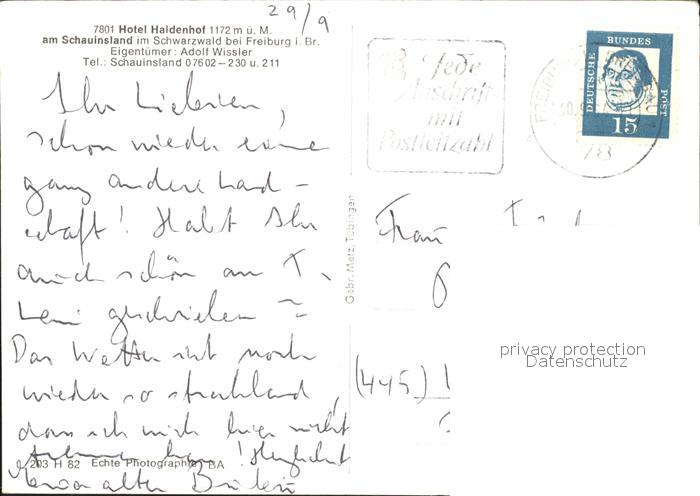 29/9
7801 Hotel Haldenhof 1172 m ü. M.
am Schauinsland im Schwarzwald bei Freiburg i. Br.
Eigentümer: Adolf Wissler
Tel.: Schauinsland 07602–230 u. 211
Ihr Lieben,
schon wieder eine
ganz andere Land-
schaft! Habt Ihr
auch schön an T.
Leni geschrieben?
Das Wetter ist noch
wieder so strahlend,
dass ich mich hier nicht
! Herzlichst
alter
203 H 82 Echte Photographie BA
Gebr. Metz, Tübingen
Jede
Anschrift
mit
Postleitzahl
FREIBURG
78
DEUTSCHE BUNDES POST
15
Frau
(445)
privacy protection
Datenschutz